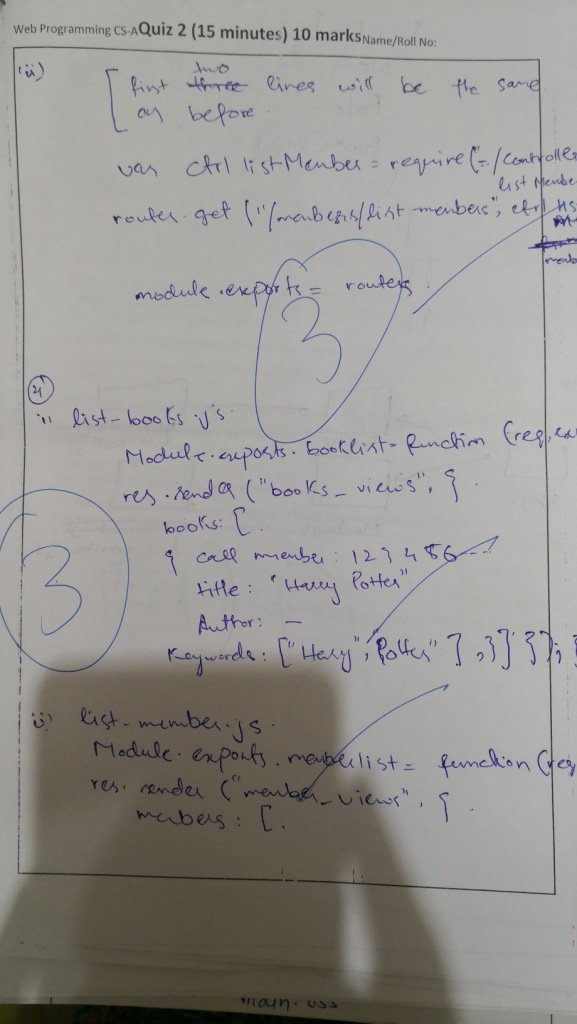 Web Programming CS-A Quiz 2 (15 minutes) 10 marks Name/Roll No:
(ii)
two
first three lines will be the same
as before.
var ctrl listMember = require("../Controlle
list Membe
router.get ("/members/list-members", ctrl lis
memb
module.exports = routers
3
4
i) list-books.js
Module.exports.booklist = function (req, 
res.render ("books_views", {
books: [
{ call member: 123456---
title: "Harry Potter"
Author: —
Keywords: ["Harry", "Potter"] , }] });
3
ii) list-member.js
Module.exports.memberlist = function (req
res.render ("member_views", {
members: [
main.css